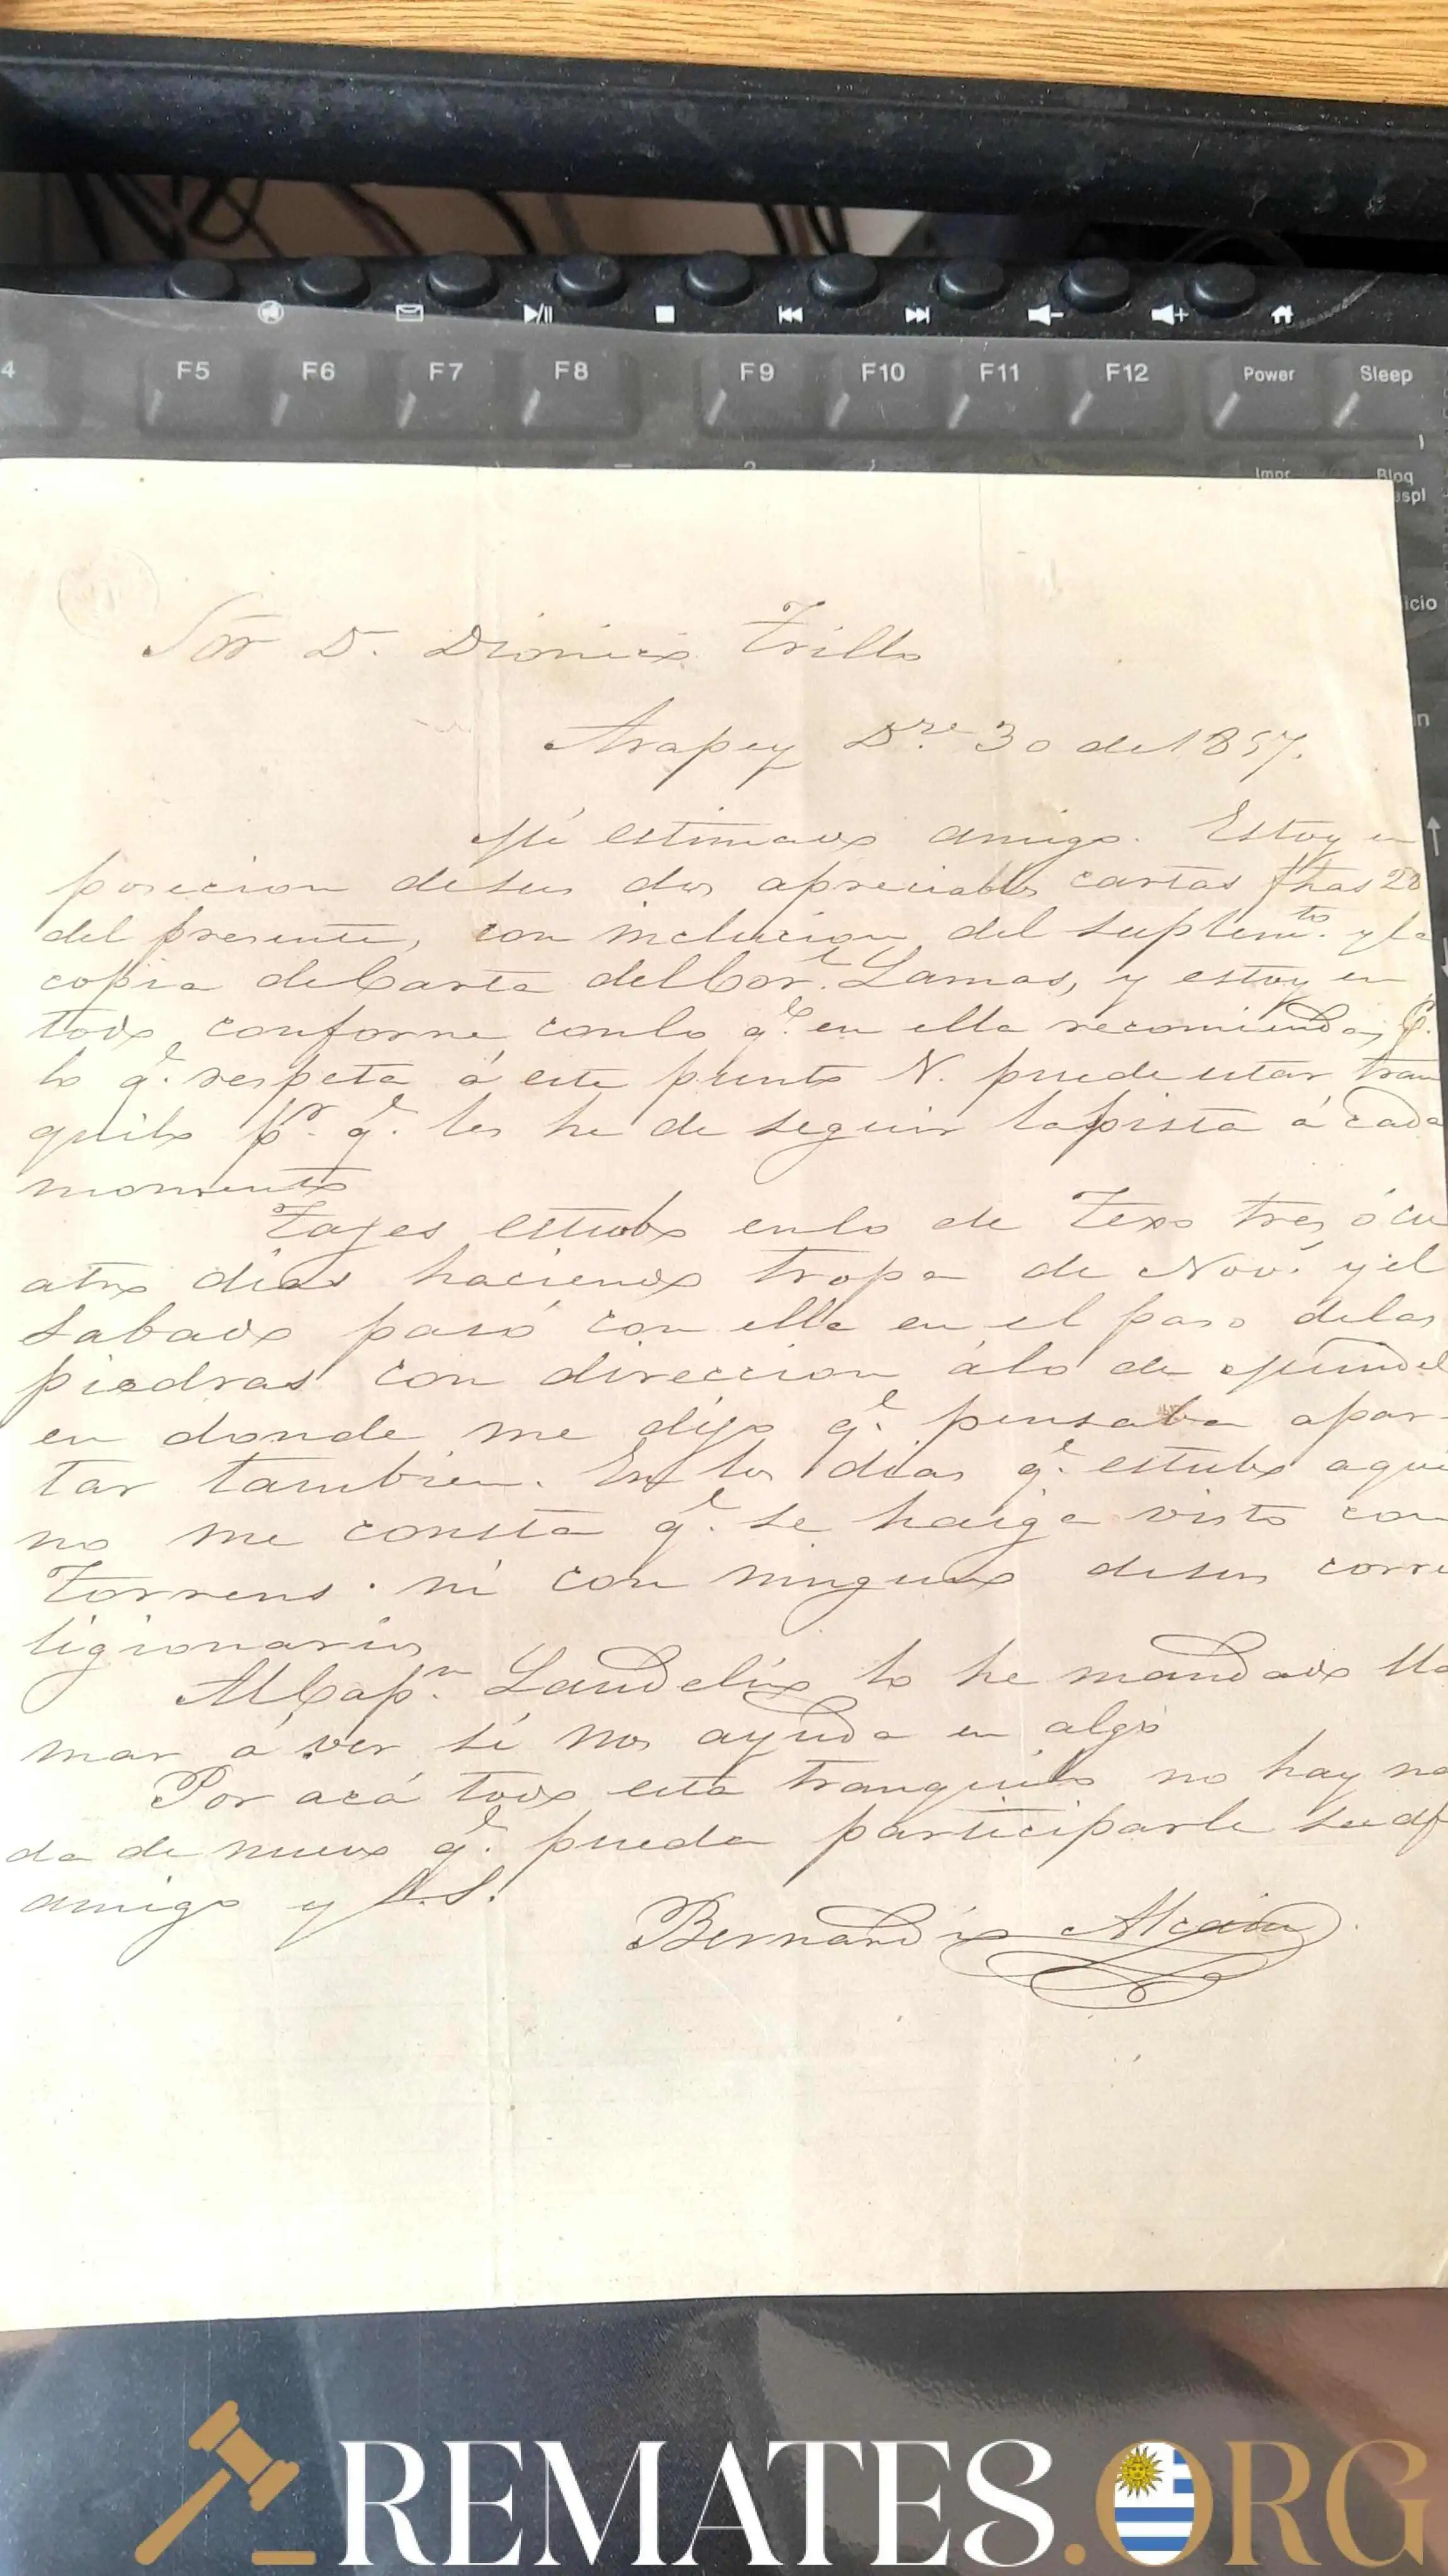 F5 F6 F7 F8 F9 F10 F11 F12 Power Sleep
4
Impr Bloq
espl
icio
in
Sor D. Dionicio Trillo
Arapey Dre 30 de 1857.
Mi estimado amigo. Estoy en
posecion desus dos apreciables cartas fhas 28
del presente, con inclucion del suplemto. y la
copia de Carta del Cor.l Lamas, y estoy en
todo conforme conlo q.e en ella recomienda,
lo q.e respeta á este punto N. puede estar tran
quilo pr. q.e les he de seguir lapista á cada
momento
Tajes estubo enlo de Texo tres, ó cu
atro dias haciendo tropa de Nov.s y el
sabado pasó con ella en el paso delas
piedras con direccion álo de
en donde me dijo q.e pensaba apar-
tar tambien. En los dias q.e estubo aqui
no me consta q.e se haiga visto con
Torrens. ni con ninguno desus corre
ligionarios
Al Cap.n Laudelino lo he mandado lla
mar á ver si nos ayuda en algo
Por acá todo esta tranquilo no hay na
da de nuevo q.e pueda participarle su af
amigo y S.S.
Bernardino Alcain
REMATES.ORG